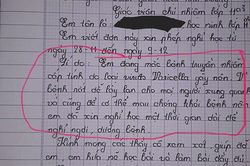 Giáo viên chủ nhiệm lớp 11
Em tên là học ninh lớp
Em viết đơn này xin phép nghỉ học từ
ngày 28-11 đến ngày 9-12
Lí do: Em đang mắc bệnh truyền nhiễm
cấp tính do loại virut Varicella gây nên. Vì
bệnh nốt dễ lây lan cho mọi người xung quanh
và cũng để có thể mau chóng khỏi bệnh nên
em đã xin nghỉ học một thời gian dài để
nghỉ ngơi, dưỡng bệnh.
Kính mong các thầy cô xem xét, giúp đỡ
em, em hứa về học bài và làm bài đầy